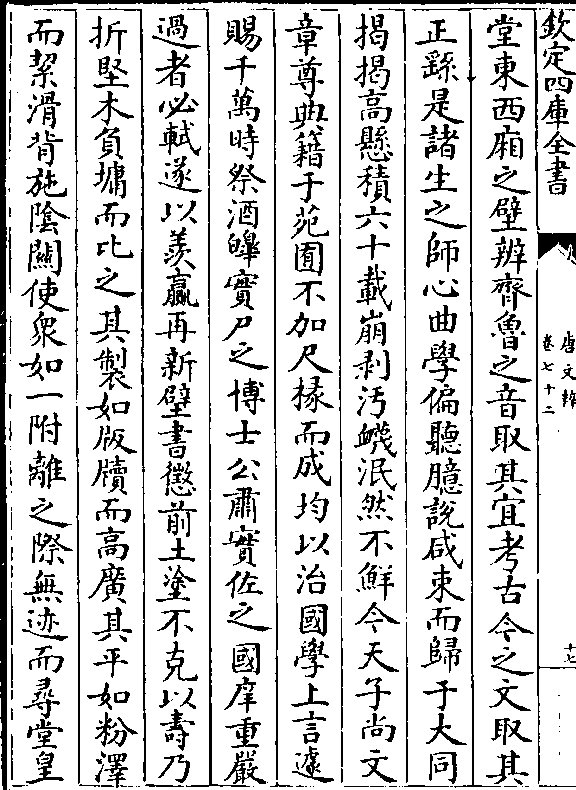 欽定四庫全書
唐文粹
卷七十二
十七
堂東西廂之壁辨齊魯之音取其宜考古今之文取其
正繇是諸生之師心曲學偏聽臆說咸束而歸于大同
揭揭高懸積六十載崩剥汚衊泯然不鮮今天子尚文
章尊典籍于苑囿不加尺椽而成均以治國學上言遽
賜千萬時祭酒皥實尸之博士公肅實佐之國庠重嚴
過者必軾遂以羨贏再新壁書懲前土塗不克以壽乃
折堅木負墉而比之其製如版牘而高廣其平如粉澤
而絜滑背施陰關使衆如一附離之際無迹而尋堂皇